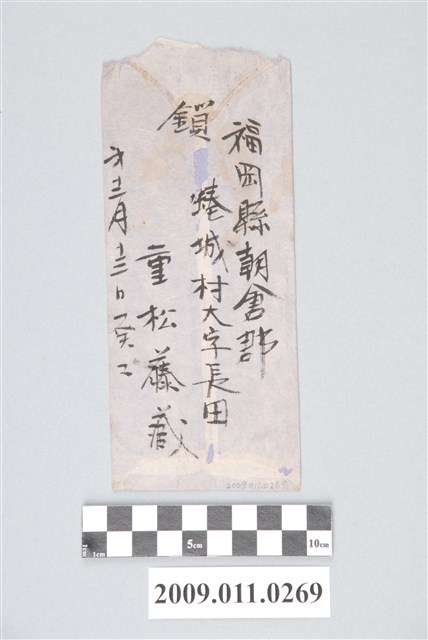 福岡縣朝倉郡
蜷城村大字長田
重松藤蔵
鎖
十二月十三日
2009.011.0269
1cm
5cm
10cm
2009.011.0269